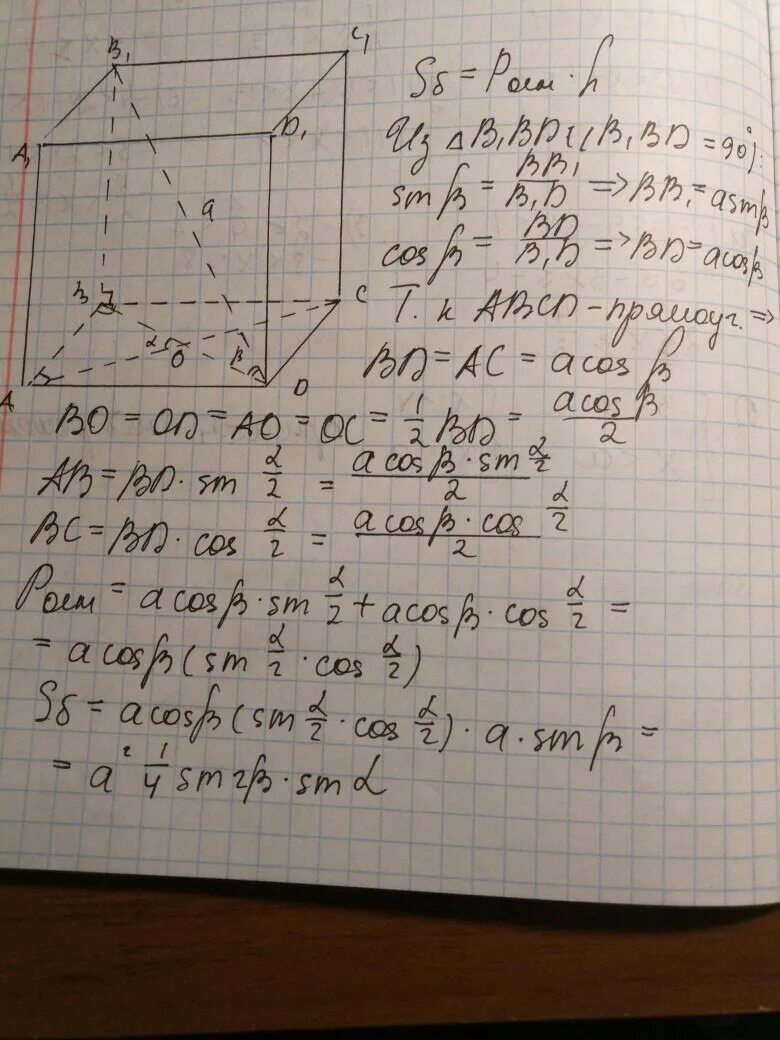 B₁
C₁
A₁
D₁
a
B
C
α
O
β
A
D
Sб = Pосн · h
Из △ B₁BD (∠B₁BD = 90°):
sin β = BB₁/B₁D => BB₁ = a sin β
cos β = BD/B₁D => BD = a cos β
Т. к ABCD – прямоуг. =>
BD = AC = a cos β
BO = OD = AO = OC = 1/2 BD = a cos β/2
AB = BD · sin α/2 = a cos β · sin α/2 / 2
BC = BD · cos α/2 = a cos β · cos α/2 / 2
Pосн = a cos β · sin α/2 + a cos β · cos α/2 =
= a cos β (sin α/2 · cos α/2)
Sб = a cos β (sin α/2 · cos α/2) · a · sin β =
= a² 1/4 sin 2β · sin α